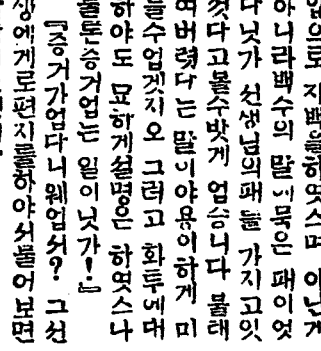 입으로 자백을하엿스며 아닌게
아니라백수의 묵은 패이엇
다닛가 선생님의패들 가지고잇
것다고볼수밧게 업습니다 불래
여버렷다는 말이야용이하게 미
들수업겟지오 그러고 화투에대
하야도 묘하게설명은 하엿스나
물론증거업는 일이닛가!』
『증거가업다니웨업서? 그선
생에게로편지를하야서물어보면